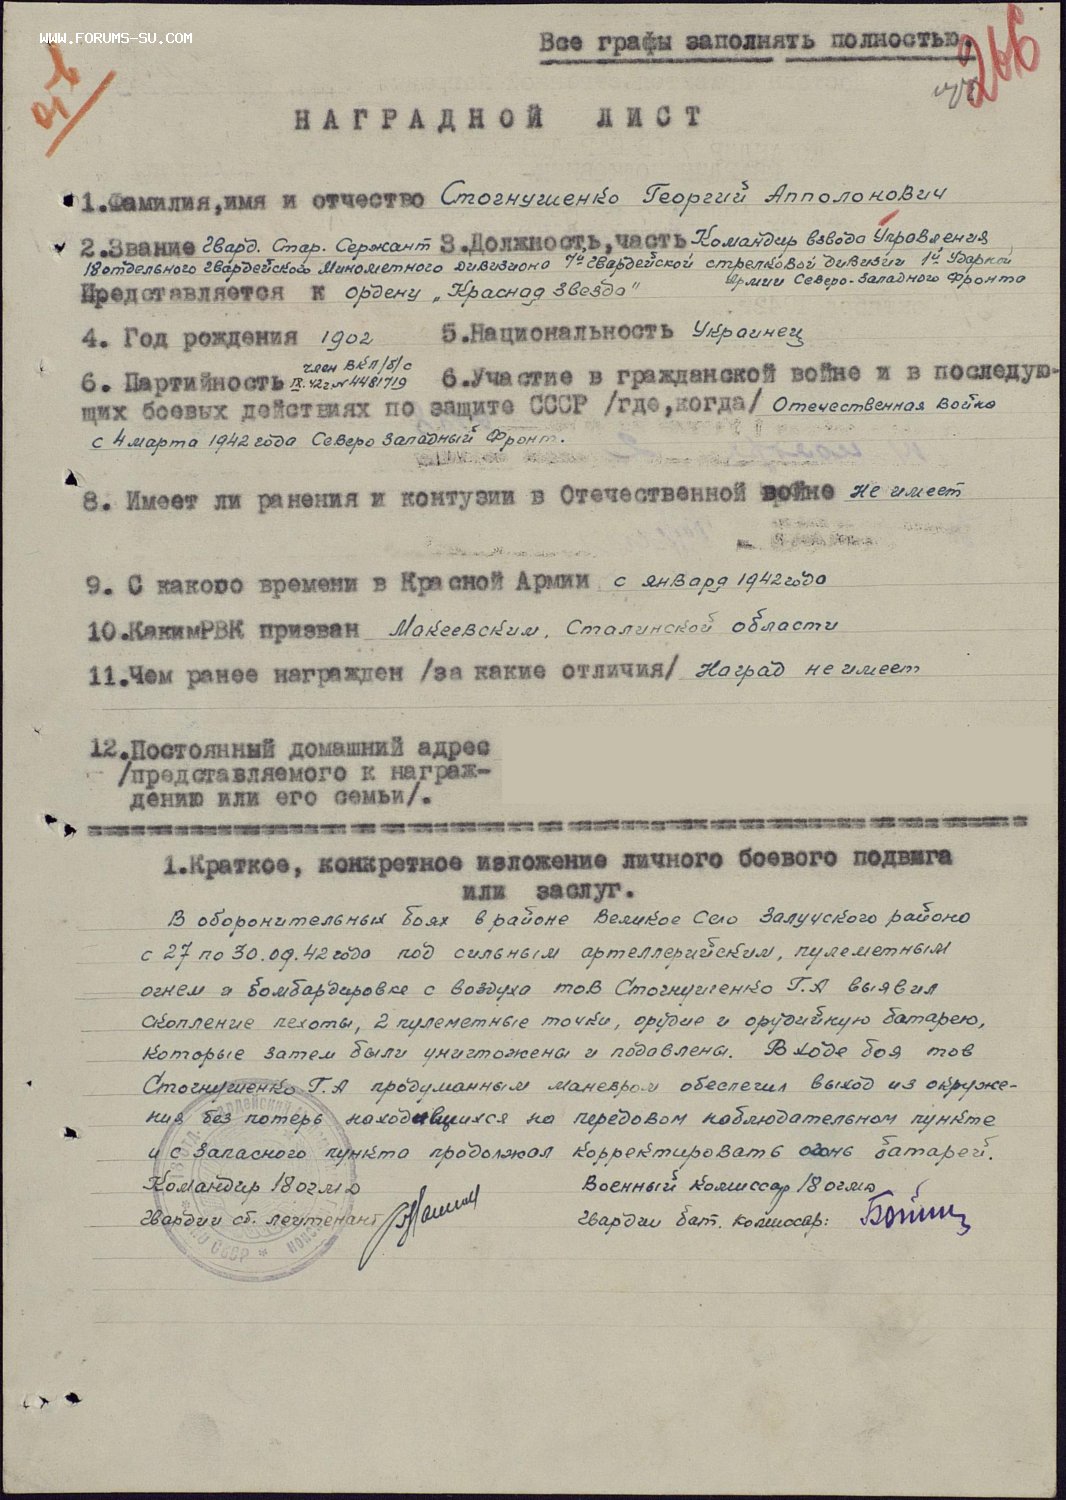 WWW.FORUMS-SU.COM
Все графы заполнять полностью.
266
НАГРАДНОЙ ЛИСТ
1.Фамилия,имя и отчество Стогнушенко Георгий Апполонович
2.Звание Гвард. Стар. Сержант 3.Должность,часть Командир взвода Управления
18 отдельного Гвардейского Минометного дивизиона 7й Гвардейской стрелковой дивизии 1й Ударной
Армии Северо-Западного Фронта
Представляется к ордену „Красная Звезда"
4. Год рождения 1902 5.Национальность Украинец
член ВКП/б/ с
6. Партийность IX.42г № 4481719 6.Участие в гражданской войне и в последую-
щих боевых действиях по защите СССР /где,когда/ Отечественная война
с 4 марта 1942 года Северо Западный Фронт.
8. Имеет ли ранения и контузии в Отечественной войне не имеет
9. С какого времени в Красной Армии с января 1942 года
10.КакимРВК призван Макеевским, Сталинской области
11.Чем ранее награжден /за какие отличия/ Наград не имеет
12.Постоянный домашний адрес
/представляемого к награж-
дению или его семьи/.
1.Краткое, конкретное изложение личного боевого подвига
или заслуг.
В оборонительных боях в районе Великое Село Залучского района
с 27 по 30.09.42 года под сильным артеллерийским, пулеметным
огнем и бомбардировке с воздуха тов Стогнушенко Г.А выявил
скопление пехоты, 2 пулеметные точки, орудие и орудийную батарею,
которые затем были уничтожены и подавлены. В ходе боя тов
Стогнушенко Г.А продуманным маневром обеспечил выход из окруже-
ния без потерь находившихся на передовом наблюдательном пункте
и с запасного пункта продолжал корректировать огонь батарей.
Командир 18 огмд Военный комиссар 18 огмд
Гвардии ст. лейтенант Гвардии бат. комиссар: